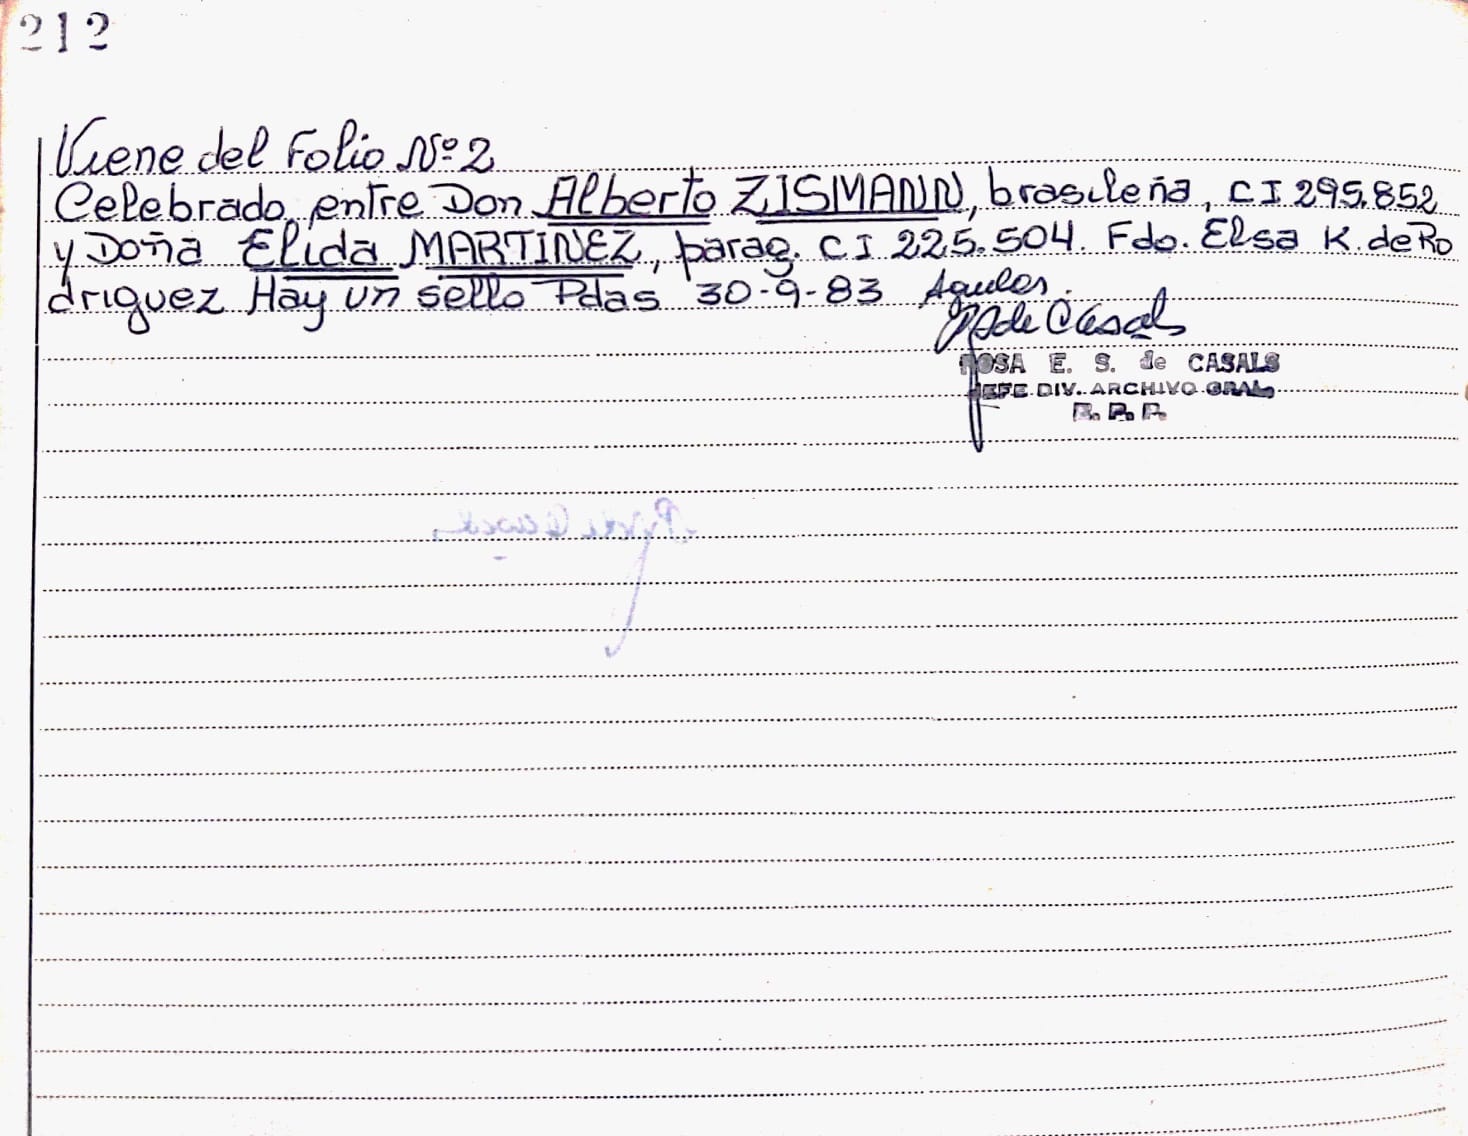 212
Viene del Folio Nº 2
Celebrado, entre Don Alberto ZISMANN, brasileña, CI 295.852
y Doña Elida MARTINEZ, parag. CI 225.504. Fdo. Elsa K. de Ro
driguez Hay un sello Pdas 30-9-83
de Casals
ROSA E. S. de CASALS
JEFE DIV. ARCHIVO GRAL